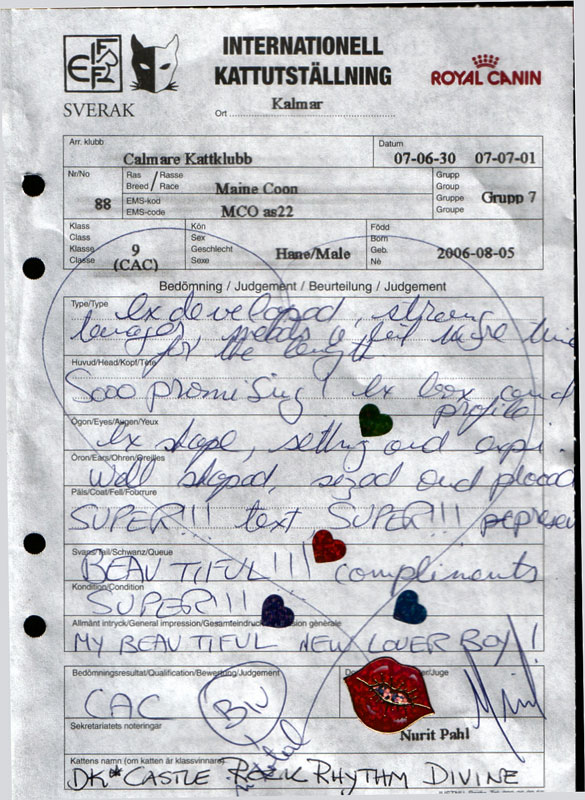 FIFe
SVERAK
INTERNATIONELL
KATTUTSTÄLLNING
ROYAL CANIN
Ort Kalmar
Arr. klubb
Calmare Kattklubb
Datum
07-06-30 07-07-01
Nr/No
88
Ras / Rasse
Breed / Race
Maine Coon
EMS-kod
EMS-code
MCO as22
Grupp
Group
Gruppe
Groupe
Grupp 7
Klass
Class
Klasse
Classe
9
(CAC)
Kön
Sex
Geschlecht
Sexe
Hane/Male
Född
Born
Geb.
Né
2006-08-05
Bedömning / Judgement / Beurteilung / Judgement
Type/Type
Ex developed, strong
teenager, needs a bit more time
for the length
Huvud/Head/Kopf/Tête
Sooo promising! Ex box and
profile
Ögon/Eyes/Augen/Yeux
Ex shape, setting and expr.
Öron/Ears/Ohren/Oreilles
Well shaped, sized and placed
Päls/Coat/Fell/Fourrure
SUPER!!! text SUPER!!!
Svans/Tail/Schwanz/Queue
BEAUTIFUL!!! compliments
Kondition/Condition
SUPER!!!
Allmänt intryck/General impression/Gesamteindruck/Impression générale
MY BEAUTIFUL NEW LOVER BOY!
Bedömningsresultat/Qualification/Bewertung/Judgement
CAC BIV
total
Juge
Nurit Pahl
Sekretariatets noteringar
Kattens namn (om katten är klassvinnare)
DK* CASTLE ROCK RHYTHM DIVINE